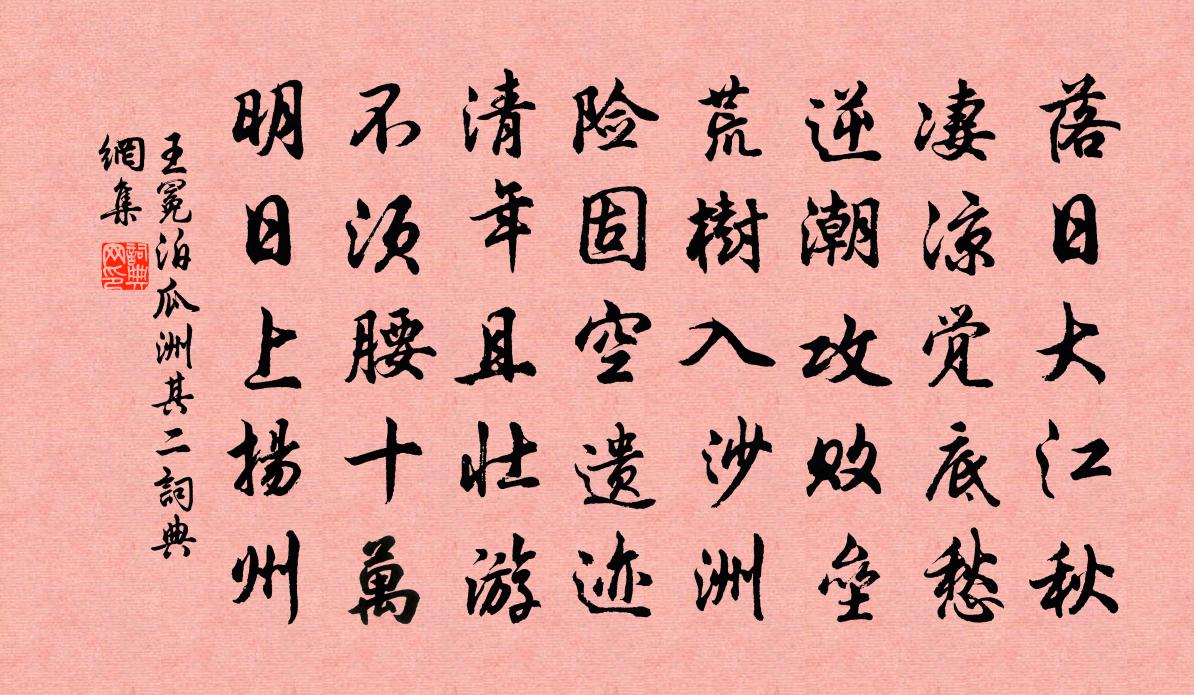 落日大江秋
凄凉觉底愁
逆潮攻败垒
荒樹入沙洲
险固空遗迹
清年且壮游
不须腰十萬
明日上揚州
王冕泊瓜洲其二詞典
網集
詞典
网印